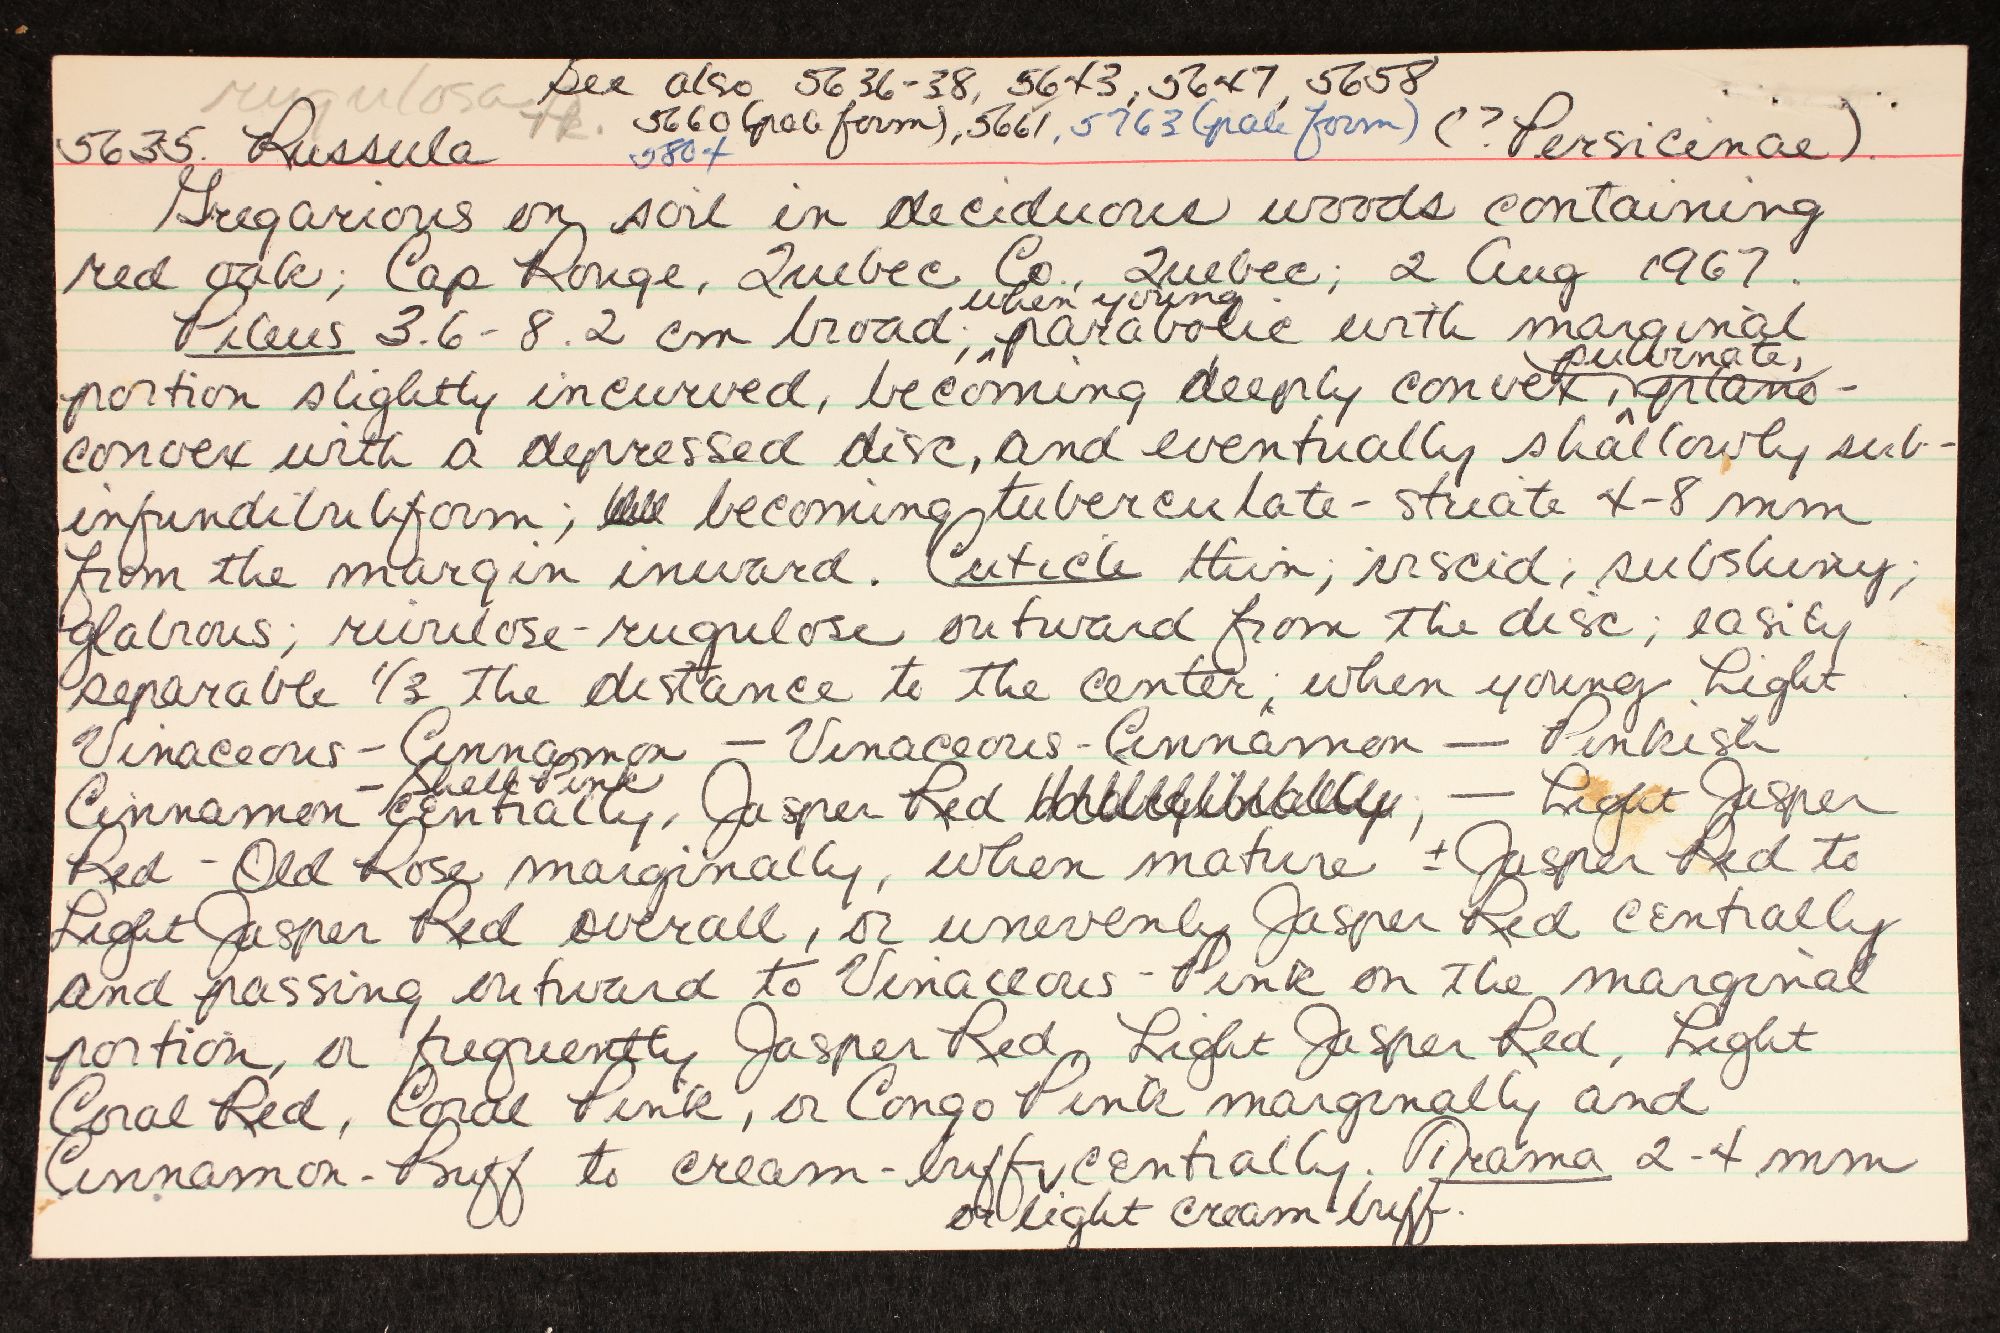 See also 5636-38, 5643, 5647, 5658
rugulosa Pk.
5660 (pale form), 5661, 5763 (pale form) (? Persicinae).
5635. Russula
5804
Gregarious on soil in deciduous woods containing
red oak; Cap Rouge, Quebec Co., Quebec; 2 Aug 1967.
when young
Pileus 3.6-8.2 cm broad; ^ parabolic with marginal
pulvinate,
portion slightly incurved, becoming deeply convex, ^ plano-
convex with a depressed disc, and eventually shallowly sub-
infundibuliform; becoming tuberculate-striate 4-8 mm
from the margin inward. Cuticle thin; viscid; subshiny;
glabrous; rivulose-rugulose outward from the disc; easily
separable 1/3 the distance to the center; when young Light
Vinaceous-Cinnamon — Vinaceous-Cinnamon — Pinkish
- Shell Pink
Cinnamon centrally, Jasper Red, — Light Jasper
Red - Old Rose marginally, when mature ± Jasper Red to
Light Jasper Red overall, or unevenly Jasper Red centrally
and passing outward to Vinaceous-Pink on the marginal
portion, or frequently Jasper Red, Light Jasper Red, Light
Coral Red, Coral Pink, or Congo Pink marginally and
Cinnamon-Buff to cream-buff v centrally. Trama 2-4 mm
or light cream-buff.